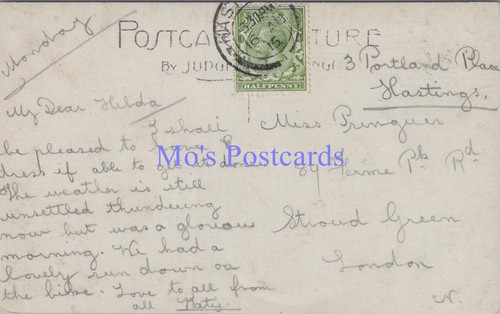 Monday
POSTCARD PICTURE
BY JUDGES
HALFPENNY
3 Portland Place
Hastings.
My Dear Hilda
I shall
be pleased to have
dress if able to get it done
The weather is still
unsettled thundering
now but was a glorious
morning. We had a
lovely run down on
the bike. Love to all from
all Katy.
Miss Pringuer
89 Ferme Pk Rd
Stroud Green
London
N.
Mo's Postcards